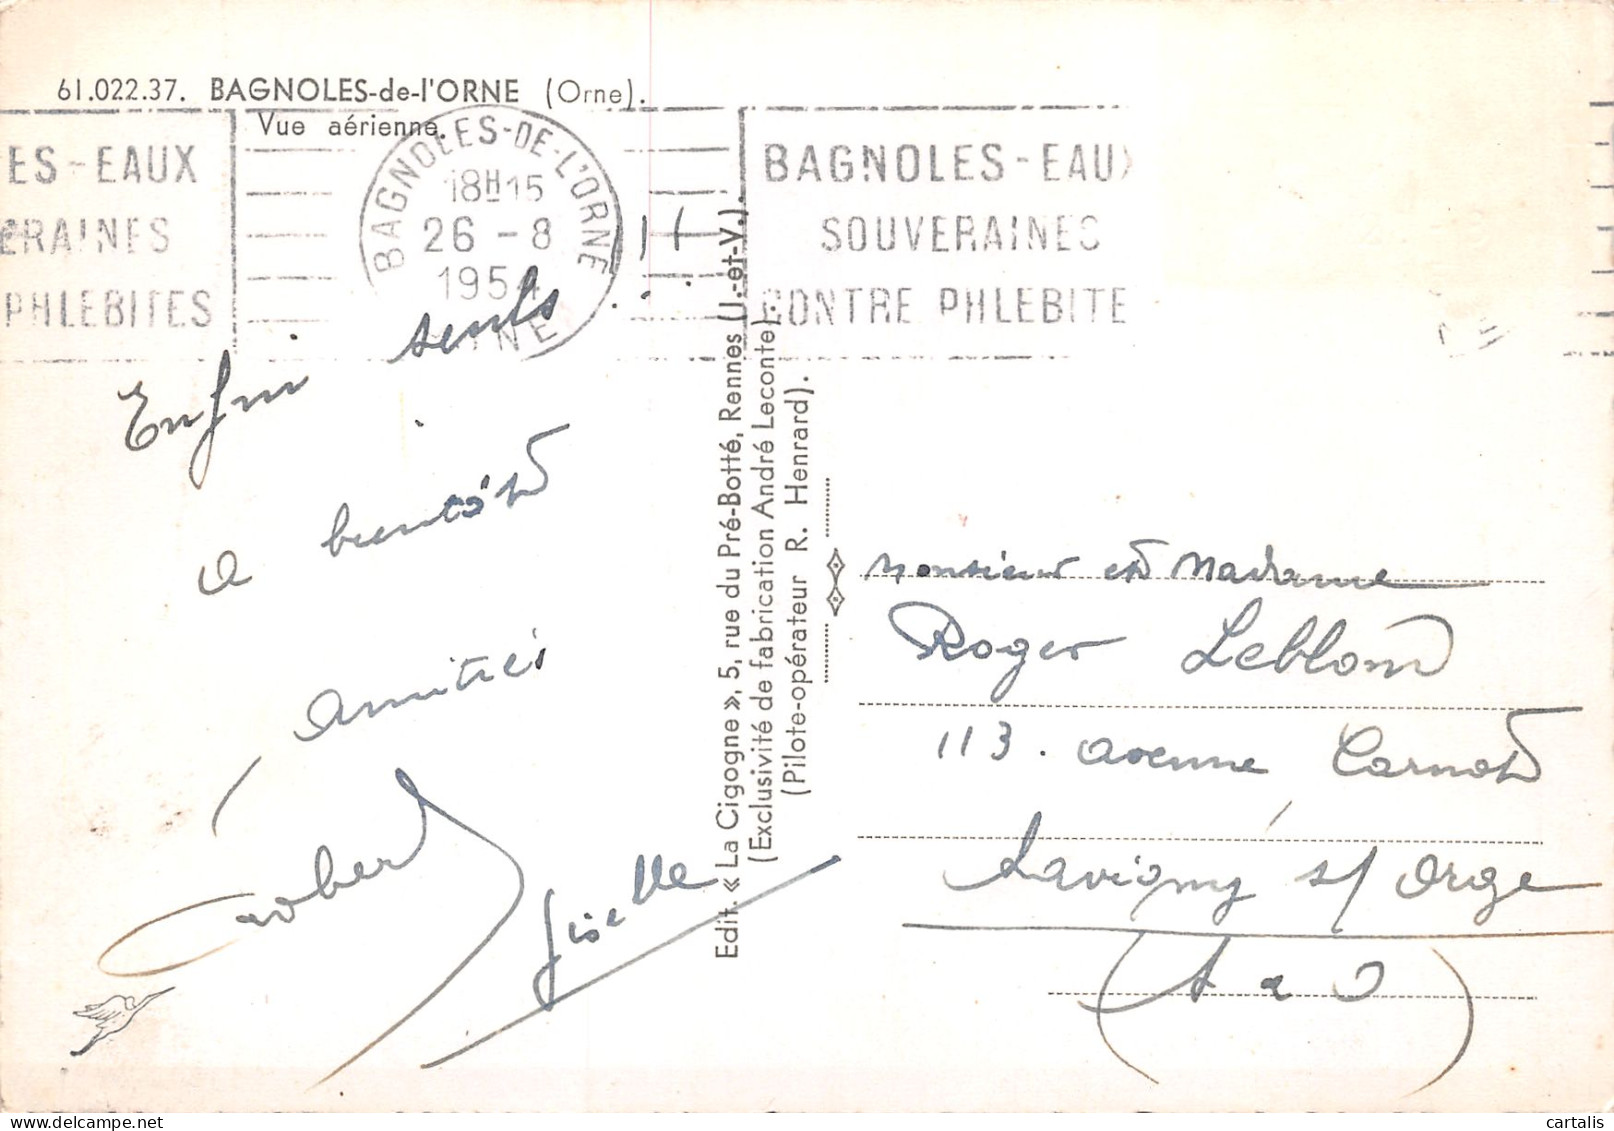 61.022.37. BAGNOLES-de-l'ORNE (Orne).
Vue aérienne.
ES-EAUX
ERAINES
PHLEBITES
BAGNOLES-DE-L'ORNE
18H15
26-8
1954
ORNE
BAGNOLES-EAUX
SOUVERAINES
CONTRE PHLEBITE
Enfin seuls...!!
a bientôt
amitiés
Robert
Giselle
Edit. « La Cigogne », 5, rue du Pré-Botté, Rennes (I.-et-V.).
(Exclusivité de fabrication André Leconte).
(Pilote-opérateur R. Henrard).
Monsieur et Madame
Roger Leblond
113. avenue Carnot
Savigny s/ Orge
(S & O)
cartalis